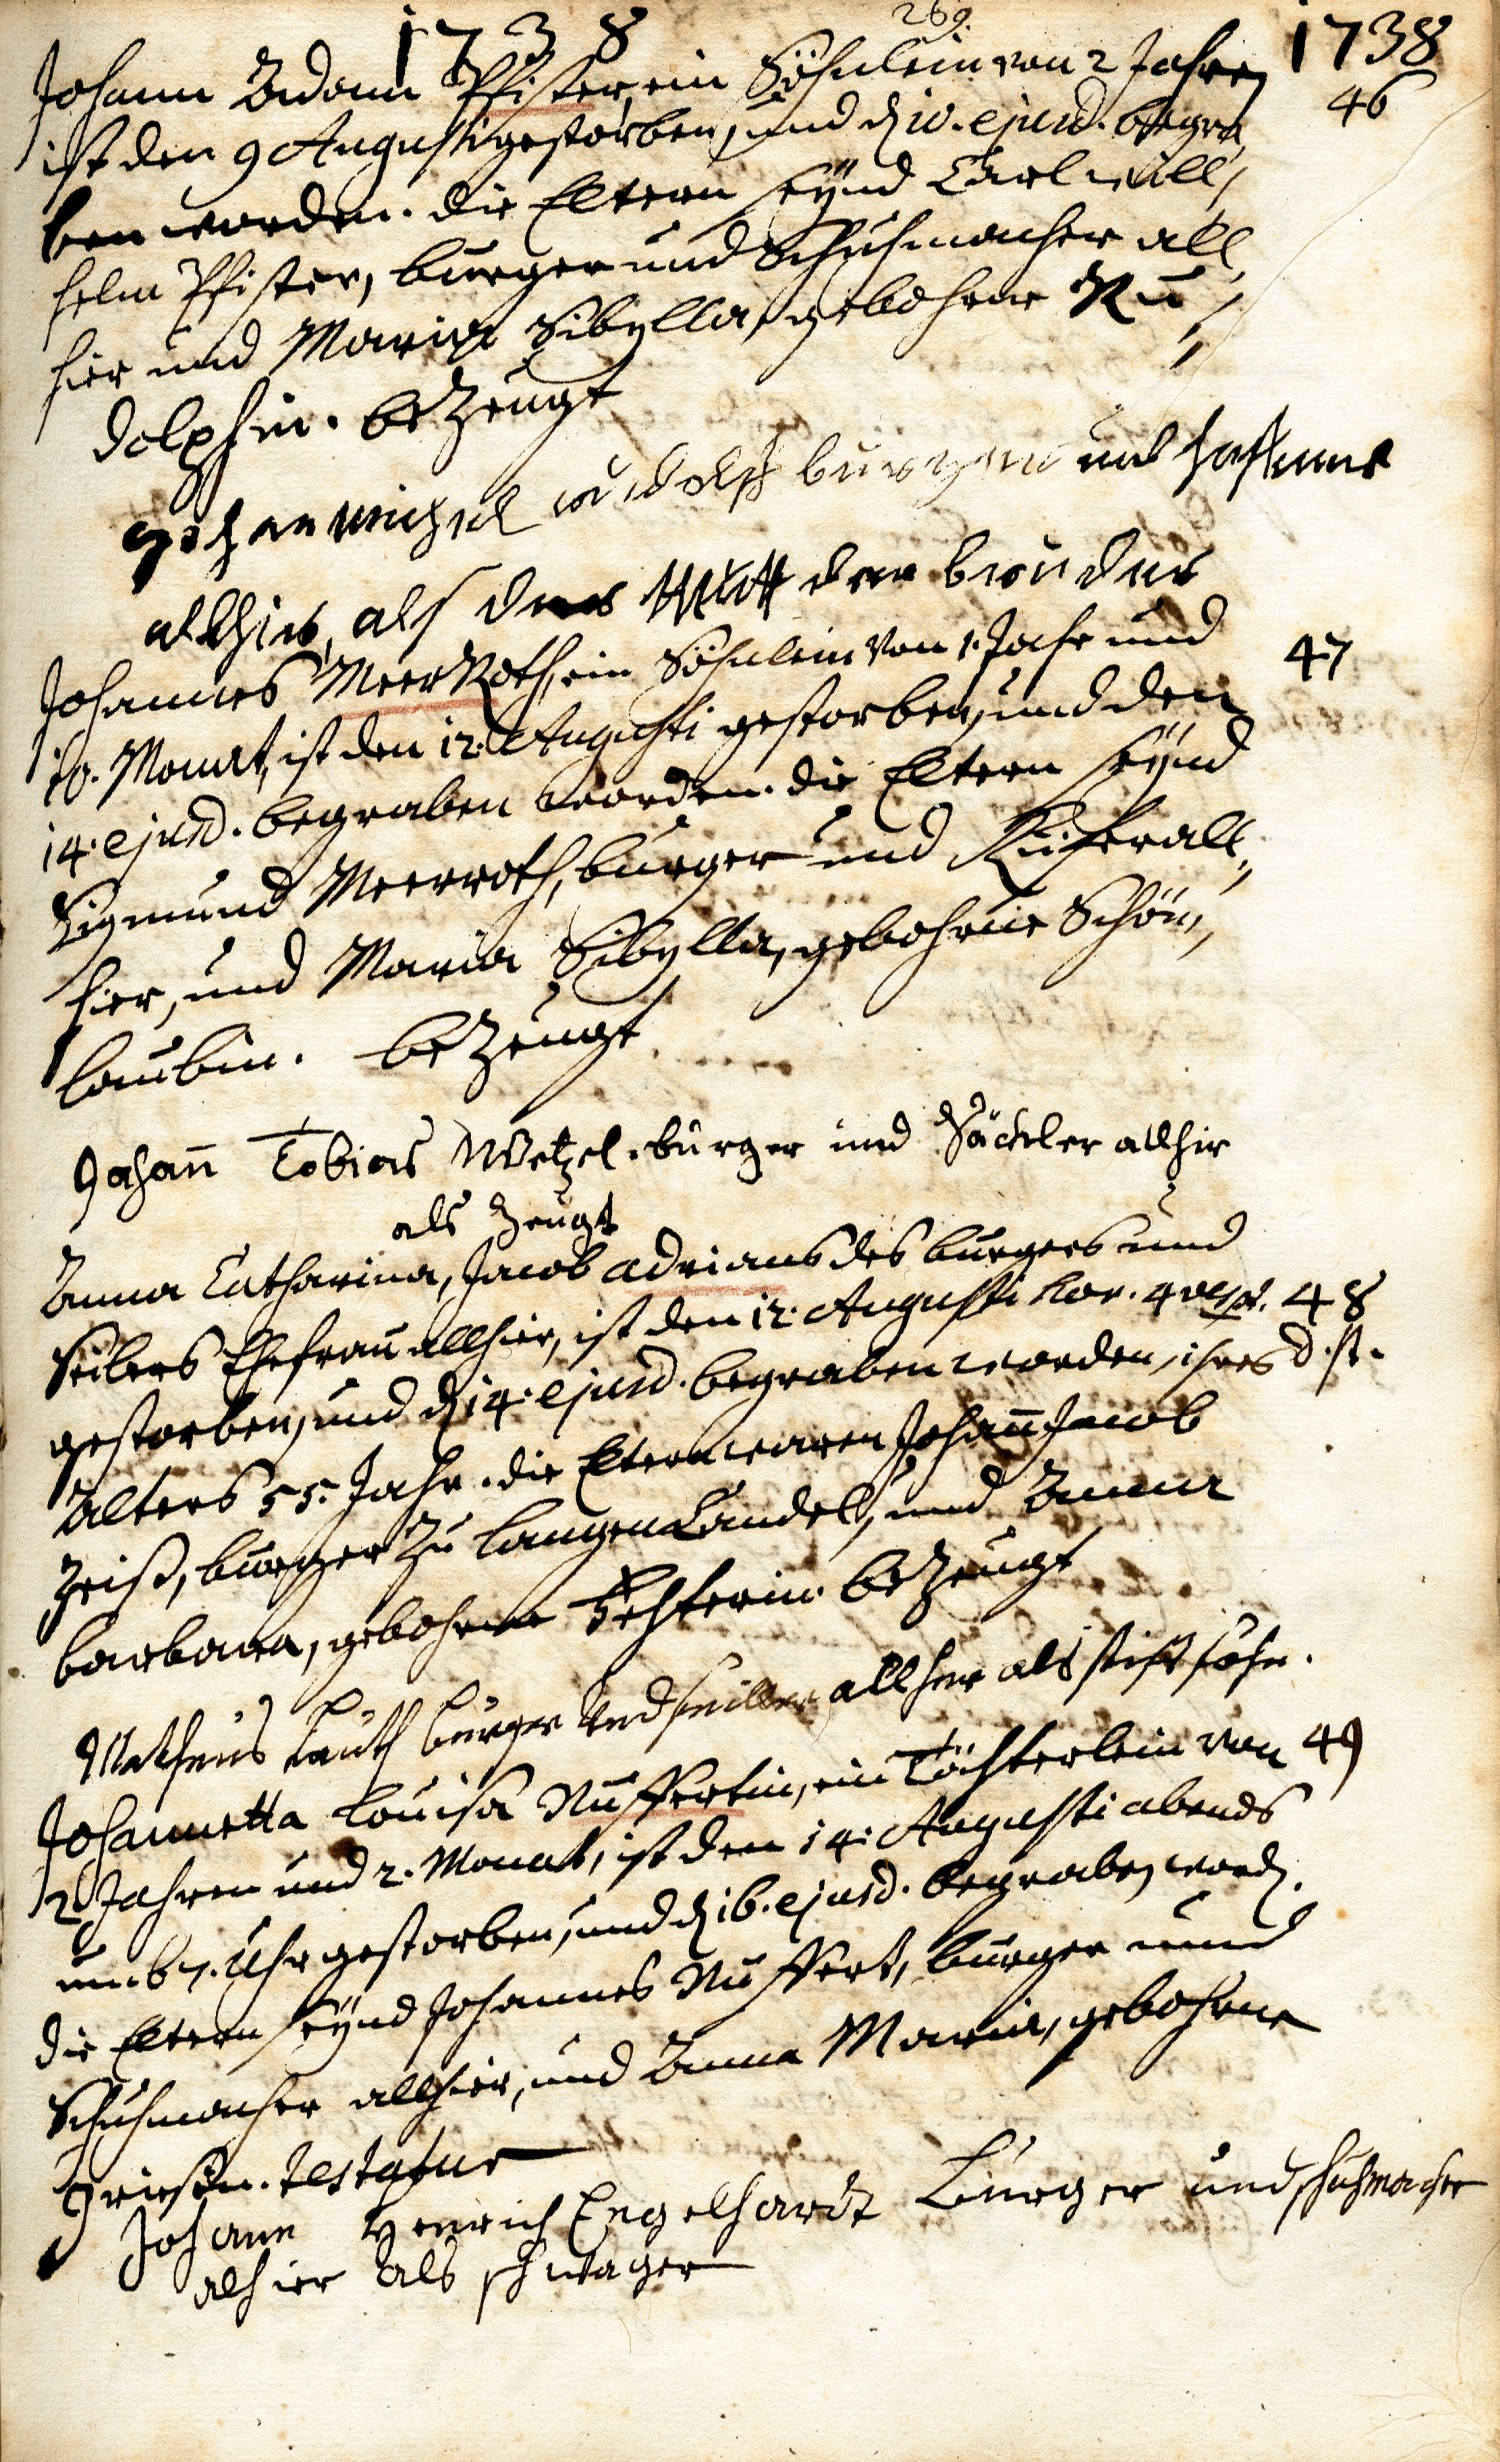 269.
1738 1738
Johann Adam Pfister, ein Söhnlein von 2 Jahren 46
ist den 9 Augusti gestorben, und d. 10. ejusd. begra,
ben worden. die Eltern seynd Carl Will,
helm Pfister, burger und Schuhmacher all,
hier und Maria Sibylla, gebohrne Ru,,
dolphin. bezeugt
Johan michel rudolff burger und haffner
allhir, als der Mutter bruder
Johannes MeerRoth, ein Söhnlein von 1. Jahr und 47
10. Monat, ist den 12. Augusti gestorben, und den
14. ejusd. begraben worden. die Eltern seynd
Sigmund Meerroth, burger und Küfer all,,
hier, und Maria Sibylla, gebohrne Schön,,
laubin. bezeugt
Johann Tobias Wetzel. burger und Säckler allhir
als Zeugt
Anna Catharina, Jacob Adrians des burgers und
Seilers Ehefrau allhier, ist den 12. Augusti vor. 4 48
gestorben, und d. 14. ejusd. begraben worden, ihres d. st.
Alters 55. Jahr. die Eltern waren Johann Jacob
Zeiß, burger zu Langen Candell, und Anna
barbara, gebohrne Fehserin. bezeugt
Matheus Lauth burger und seiller allhier als stiffsohn.
Johannetta Louisa Nuffertin, ein Töchterlein von 49
2 Jahren und 2. Monat, ist den 14. Augusti abends
um 6 7. Uhr gestorben, und d. 16. ejusd. begraben word.
die Eltern seynd Johannes Nuffert, burger und
Schuhmacher allhier, und Anna Maria, gebohrne
Griesin. testatur
Johann Henrich Engelhardt Burger und schuhmacher
alhier als schwager